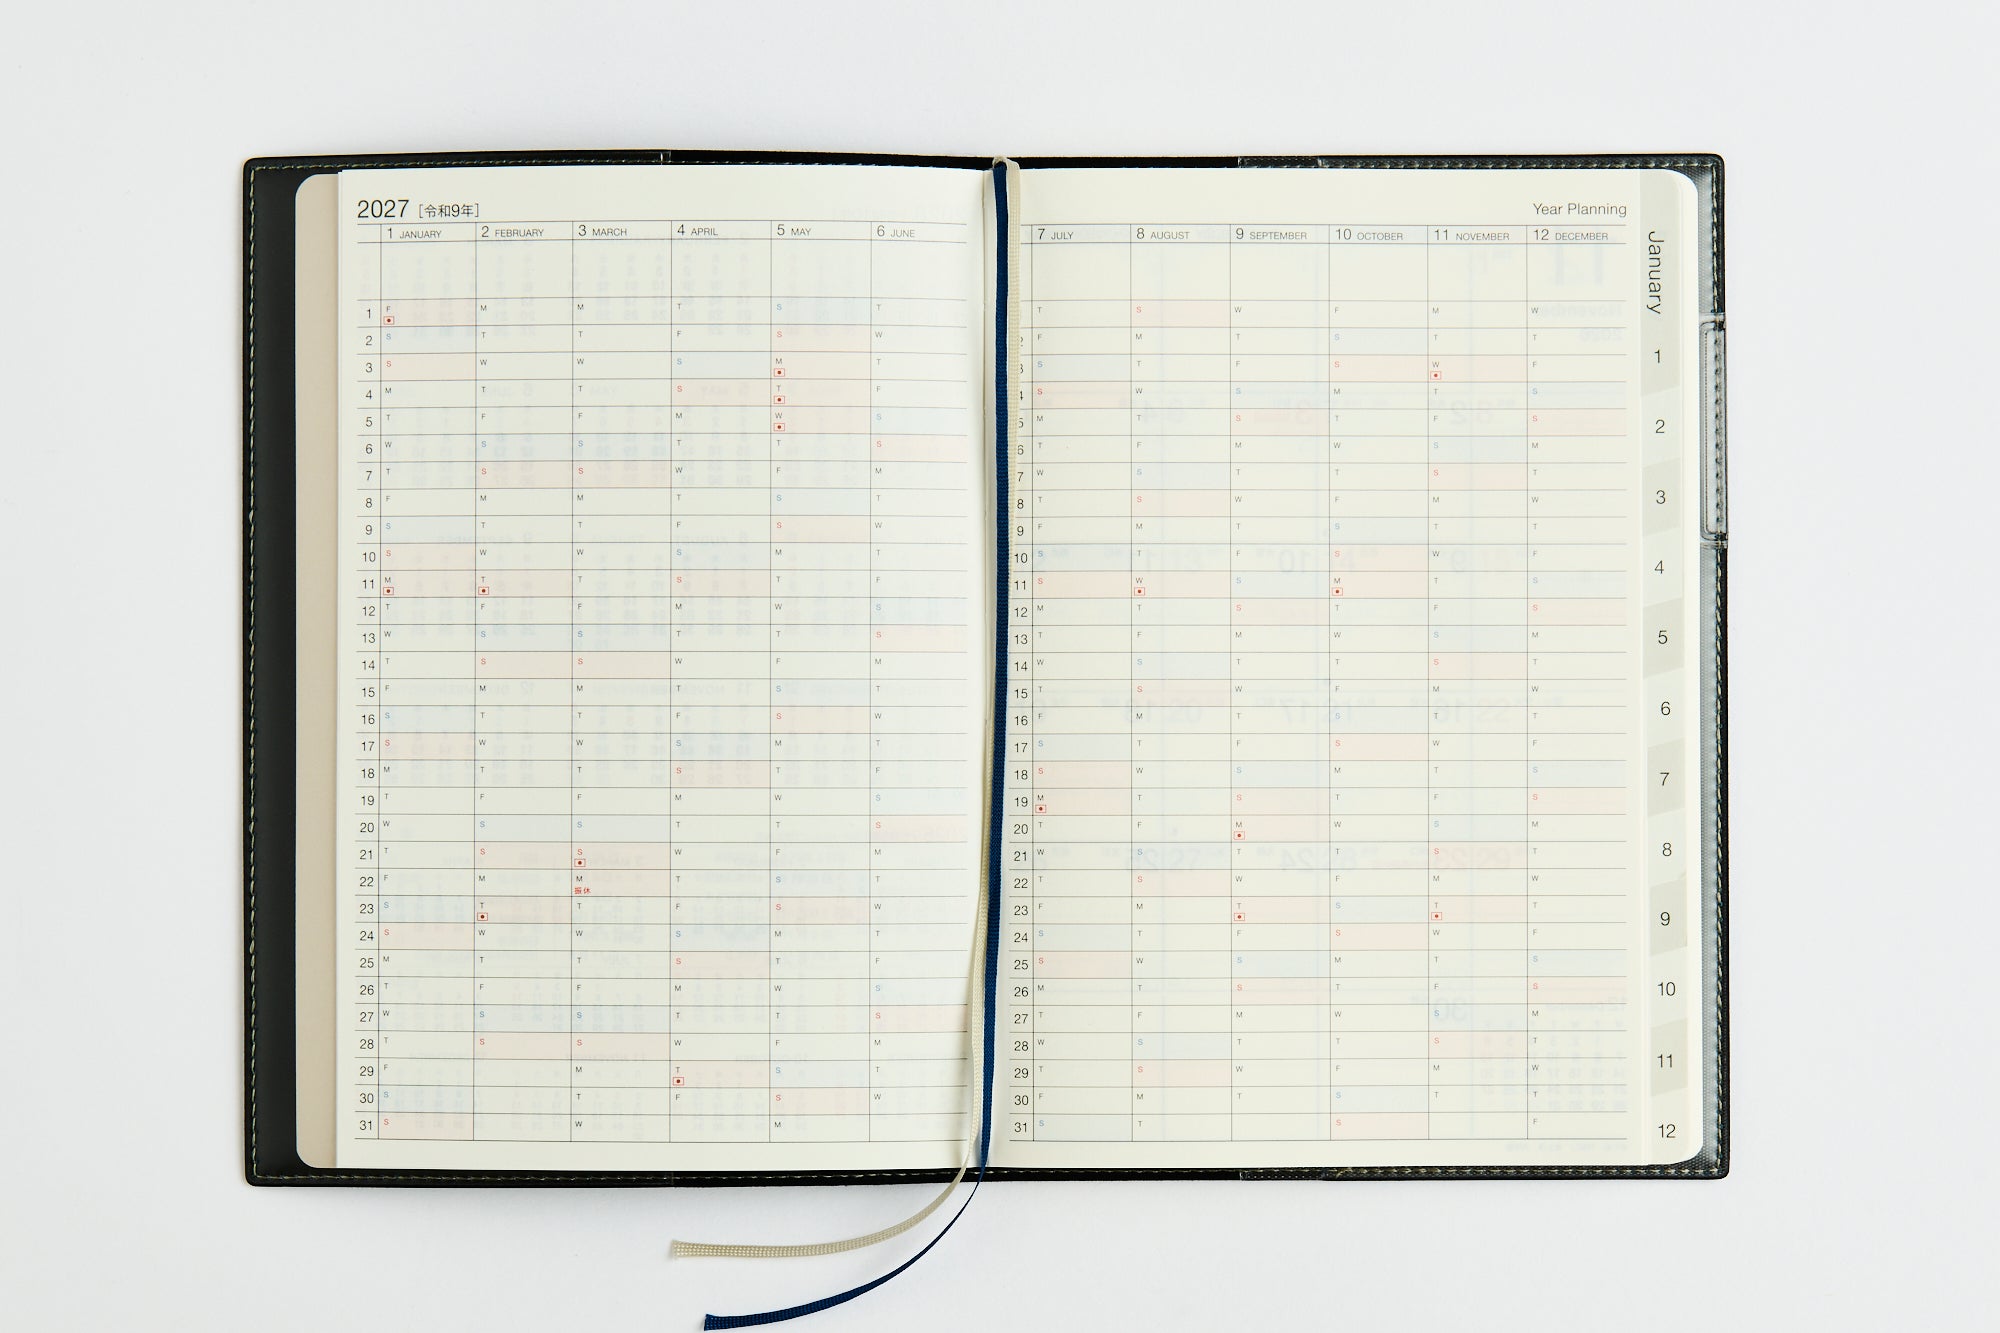 2027 [令和9年]
1 JANUARY 2 FEBRUARY 3 MARCH 4 APRIL 5 MAY 6 JUNE
1 F M M T S T
2 S T T F S W
3 S W W S M T
4 M T T S T F
5 T F F M W S
6 W S S T T S
7 T S S W F M
8 F M M T S T
9 S T T F S W
10 S W W S M T
11 M T T S T F
12 T F F M W S
13 W S S T T S
14 T S S W F M
15 F M M T S T
16 S T T F S W
17 S W W S M T
18 M T T S T F
19 T F F M W S
20 W S S T T S
21 T S S W F M
22 F M M T S T
振休
23 S T T F S W
24 S W W S M T
25 M T T S T F
26 T F F M W S
27 W S S T T S
28 T S S W F M
29 F M T S T
30 S T F S W
31 S W M
Year Planning
7 JULY 8 AUGUST 9 SEPTEMBER 10 OCTOBER 11 NOVEMBER 12 DECEMBER
T S W F M W
2 F M T S T T
3 S T F S W F
4 S W S M T S
5 M T S T F S
6 T F M W S M
7 W S T T S T
8 T S W F M W
9 F M T S T T
10 S T F S W F
11 S W S M T S
12 M T S T F S
13 T F M W S M
14 W S T T S T
15 T S W F M W
16 F M T S T T
17 S T F S W F
18 S W S M T S
19 M T S T F S
20 T F M W S M
21 W S T T S T
22 T S W F M W
23 F M T S T T
24 S T F S W F
25 S W S M T S
26 M T S T F S
27 T F M W S M
28 W S T T S T
29 T S W F M W
30 F M T S T T
31 S T S F
January
1
2
3
4
5
6
7
8
9
10
11
12